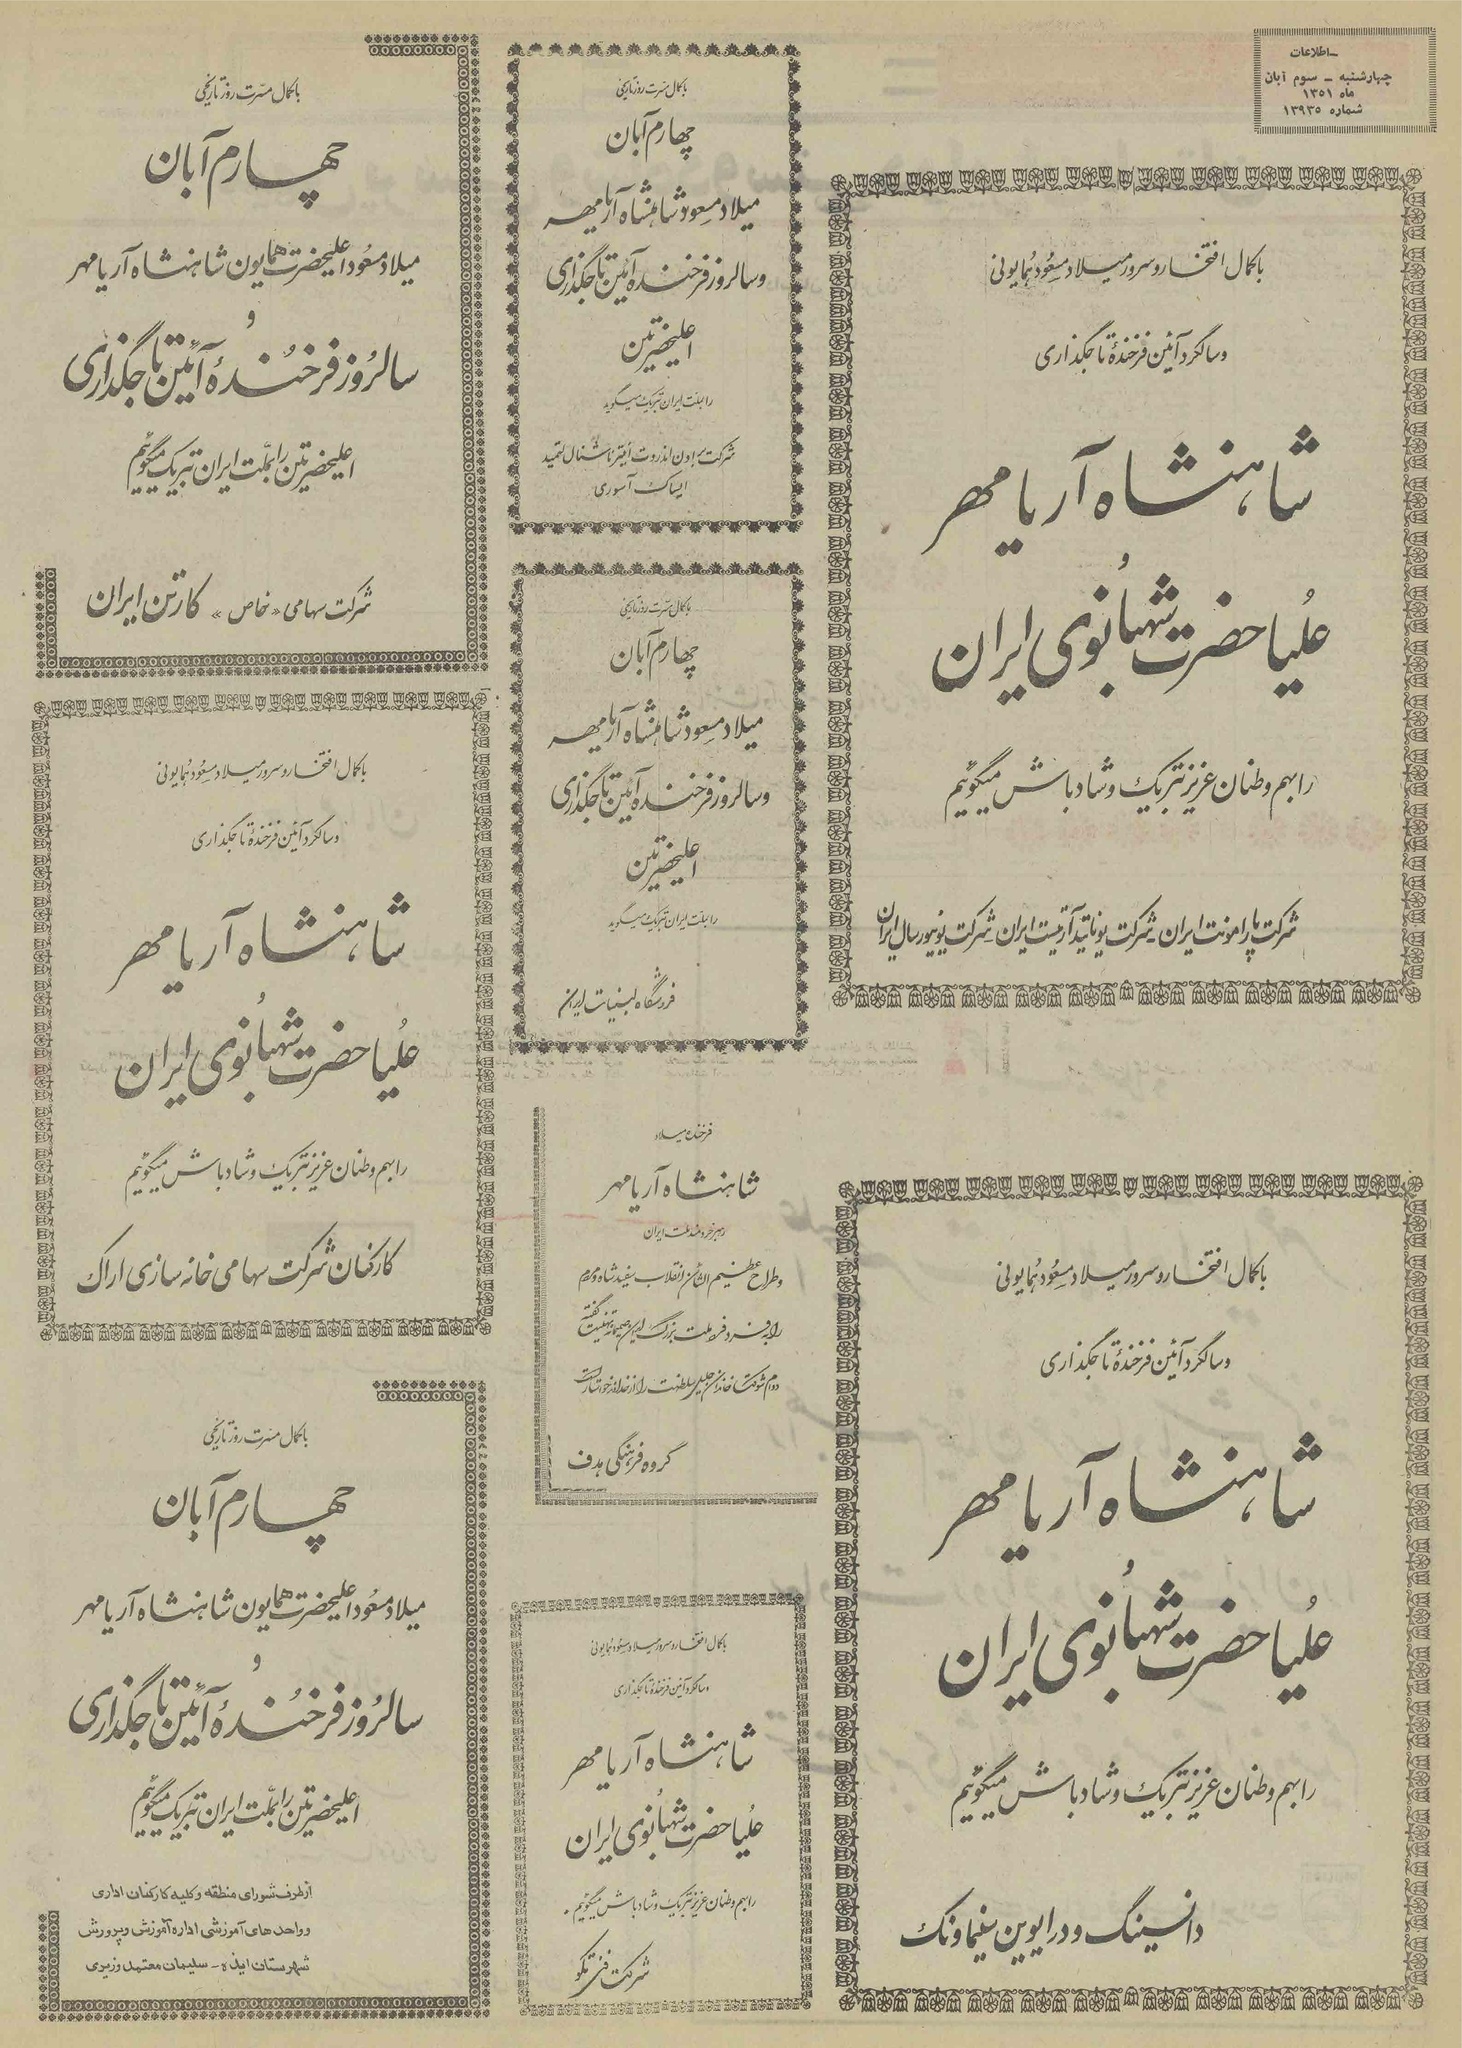 -اطلاعات
چهارشنبه - سوم آبان
ماه ۱۳۵۱
شماره ۱۳۹۳۵
باکمال افتخار و سرور میلاد مسعود همایونی
و سالگرد آئین فرخندهٔ تاجگذاری
شاهنشاه آریامهر
و
عُلیاحضرت شهبانوی ایران
را بهم وطنان عزیز تبریک و شادباش میگوئیم
شرکت پارامونت ایران - شرکت یونایتد آرتیست ایران شرکت یونیورسال ایران
باکمال افتخار و سرور میلاد مسعود همایونی
و سالگرد آئین فرخندهٔ تاجگذاری
شاهنشاه آریامهر
و
عُلیاحضرت شهبانوی ایران
را بهم وطنان عزیز تبریک و شادباش میگوئیم
دانسینگ و درایوین سینما ونک
باکمال مسرت روز تاریخی
چهارم آبان
میلاد مسعود شاهنشاه آریامهر
و سالروز فرخنده آئین تاجگذاری
اعلیحضرتین
را بملت ایران تبریک میگوید
شرکت براون اندروت اینترناشنال لتمید
ایساک آسوری
باکمال مسرت روز تاریخی
چهارم آبان
میلاد مسعود شاهنشاه آریامهر
و سالروز فرخنده آئین تاجگذاری
اعلیحضرتین
را بملت ایران تبریک میگوید
فروشگاه لبنیات ایران
فرخنده میلاد
شاهنشاه آریامهر
رهبر خردمند ملت ایران
و طراح عظیم الشأن انقلاب سفید شاه و مردم
را به فرد فرد ملت بزرگ ایران صمیمانه تهنیت گفته
دوام شوکت خاندان جلیل سلطنت را از خداوند خواستار است
گروه فرهنگی هدف
باکمال افتخار و سرور میلاد مسعود همایونی
و سالگرد آئین فرخندهٔ تاجگذاری
شاهنشاه آریامهر
و
عُلیاحضرت شهبانوی ایران
را بهم وطنان عزیز تبریک و شادباش میگوئیم.
شرکت فنی تکو
باکمال مسرت روز تاریخی
چهارم آبان
میلاد مسعود اعلیحضرت همایون شاهنشاه آریامهر
و
سالروز فرخندهٔ آئین تاجگذاری
اعلیحضرتین را بملت ایران تبریک میگوئیم
شرکت سهامی «خاص» کارتن ایران
باکمال افتخار و سرور میلاد مسعود همایونی
و سالگرد آئین فرخندهٔ تاجگذاری
شاهنشاه آریامهر
و
عُلیاحضرت شهبانوی ایران
را بهم وطنان عزیز تبریک و شادباش میگوئیم
کارکنان شرکت سهامی خانه سازی اراک
باکمال مسرت روز تاریخی
چهارم آبان
میلاد مسعود اعلیحضرت همایون شاهنشاه آریامهر
و
سالروز فرخندهٔ آئین تاجگذاری
اعلیحضرتین را بملت ایران تبریک میگوئیم
ازطرف شورای منطقه و کلیه کارکنان اداری
و واحدهای آموزشی اداره آموزش و پرورش
شهرستان ایذه - سلیمان معتمد وزیری